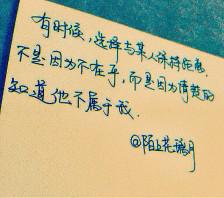 有时候，选择与某人保持距离，
不是因为不在乎，而是因为清楚的
知道他不属于我.
@陌上花满月